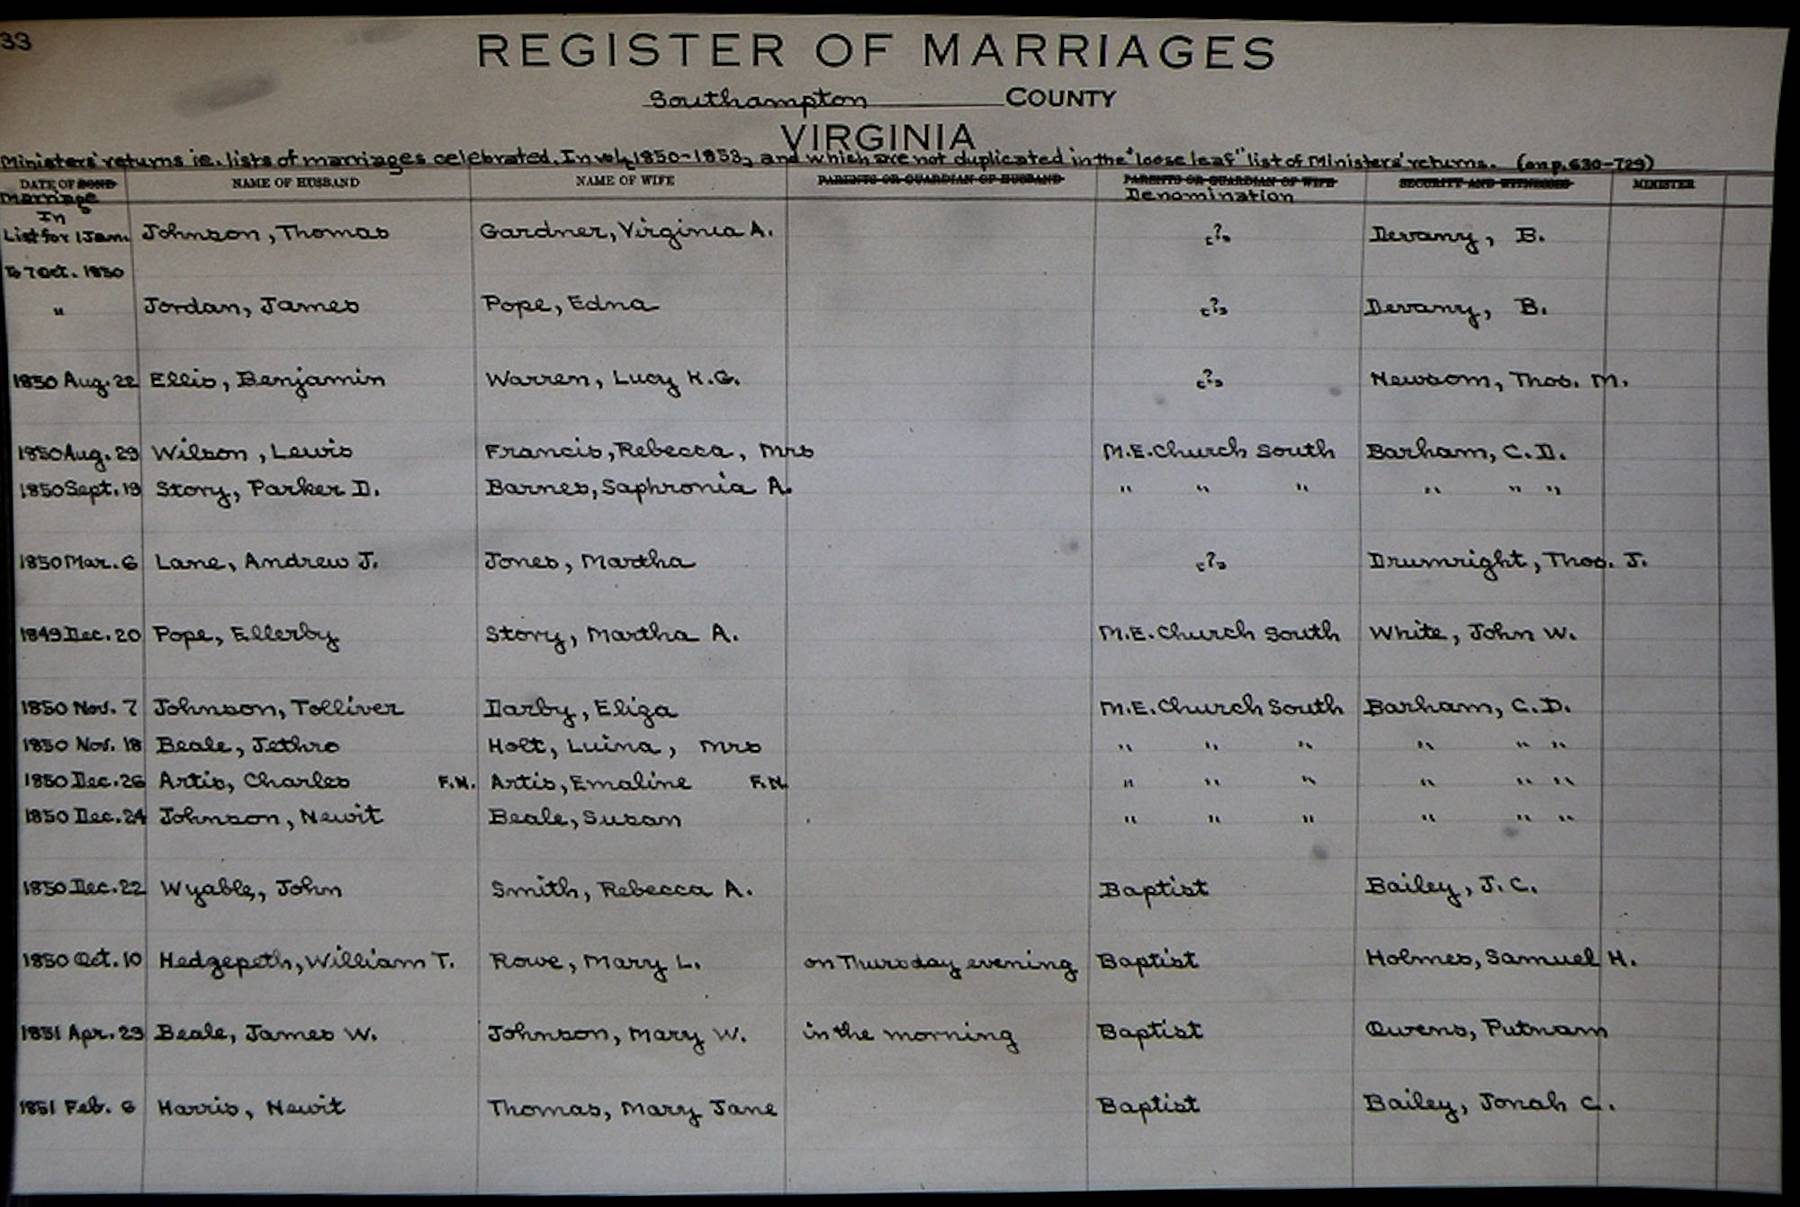 33
REGISTER OF MARRIAGES
Southampton COUNTY
VIRGINIA
Ministers' returns ie. lists of marriages celebrated. In vol. 1850-1853, and which are not duplicated in the "loose leaf" list of Ministers' returns. (on p. 630-729)
DATE OF BOND NAME OF HUSBAND NAME OF WIFE PARENTS OR GUARDIAN OF HUSBAND PARENTS OR GUARDIAN OF WIFE SECURITY AND WITNESSES MINISTER
Marriage Denomination
In
List for 1 Jan. Johnson, Thomas Gardner, Virginia A. ? Devany, B.
to 7 Oct. 1850
" Jordan, James Pope, Edna ? Devany, B.
1850 Aug. 22 Ellis, Benjamin Warren, Lucy K.G. ? Newsom, Thos. M.
1850 Aug. 29 Wilson, Lewis Francis, Rebecca, Mrs M.E. Church South Barham, C.D.
1850 Sept. 19 Story, Parker D. Barnes, Saphronia A. " " " " " "
1850 Mar. 6 Lane, Andrew J. Jones, Martha ? Drumright, Thos. J.
1849 Dec. 20 Pope, Ellerby Story, Martha A. M.E. Church South White, John W.
1850 Nov. 7 Johnson, Tolliver Darby, Eliza M.E. Church South Barham, C.D.
1850 Nov. 18 Beale, Jethro Holt, Luina, Mrs " " " " " "
1850 Dec. 26 Artis, Charles F.N. Artis, Emaline F.N. " " " " " "
1850 Dec. 24 Johnson, Newit Beale, Susan " " " " " "
1850 Dec. 22 Wyable, John Smith, Rebecca A. Baptist Bailey, J.C.
1850 Oct. 10 Hedgepeth, William T. Rowe, Mary L. on Thursday evening Baptist Holmes, Samuel H.
1851 Apr. 29 Beale, James W. Johnson, Mary W. in the morning Baptist Owens, Putnam
1851 Feb. 6 Harris, Newit Thomas, Mary Jane Baptist Bailey, Jonah C.